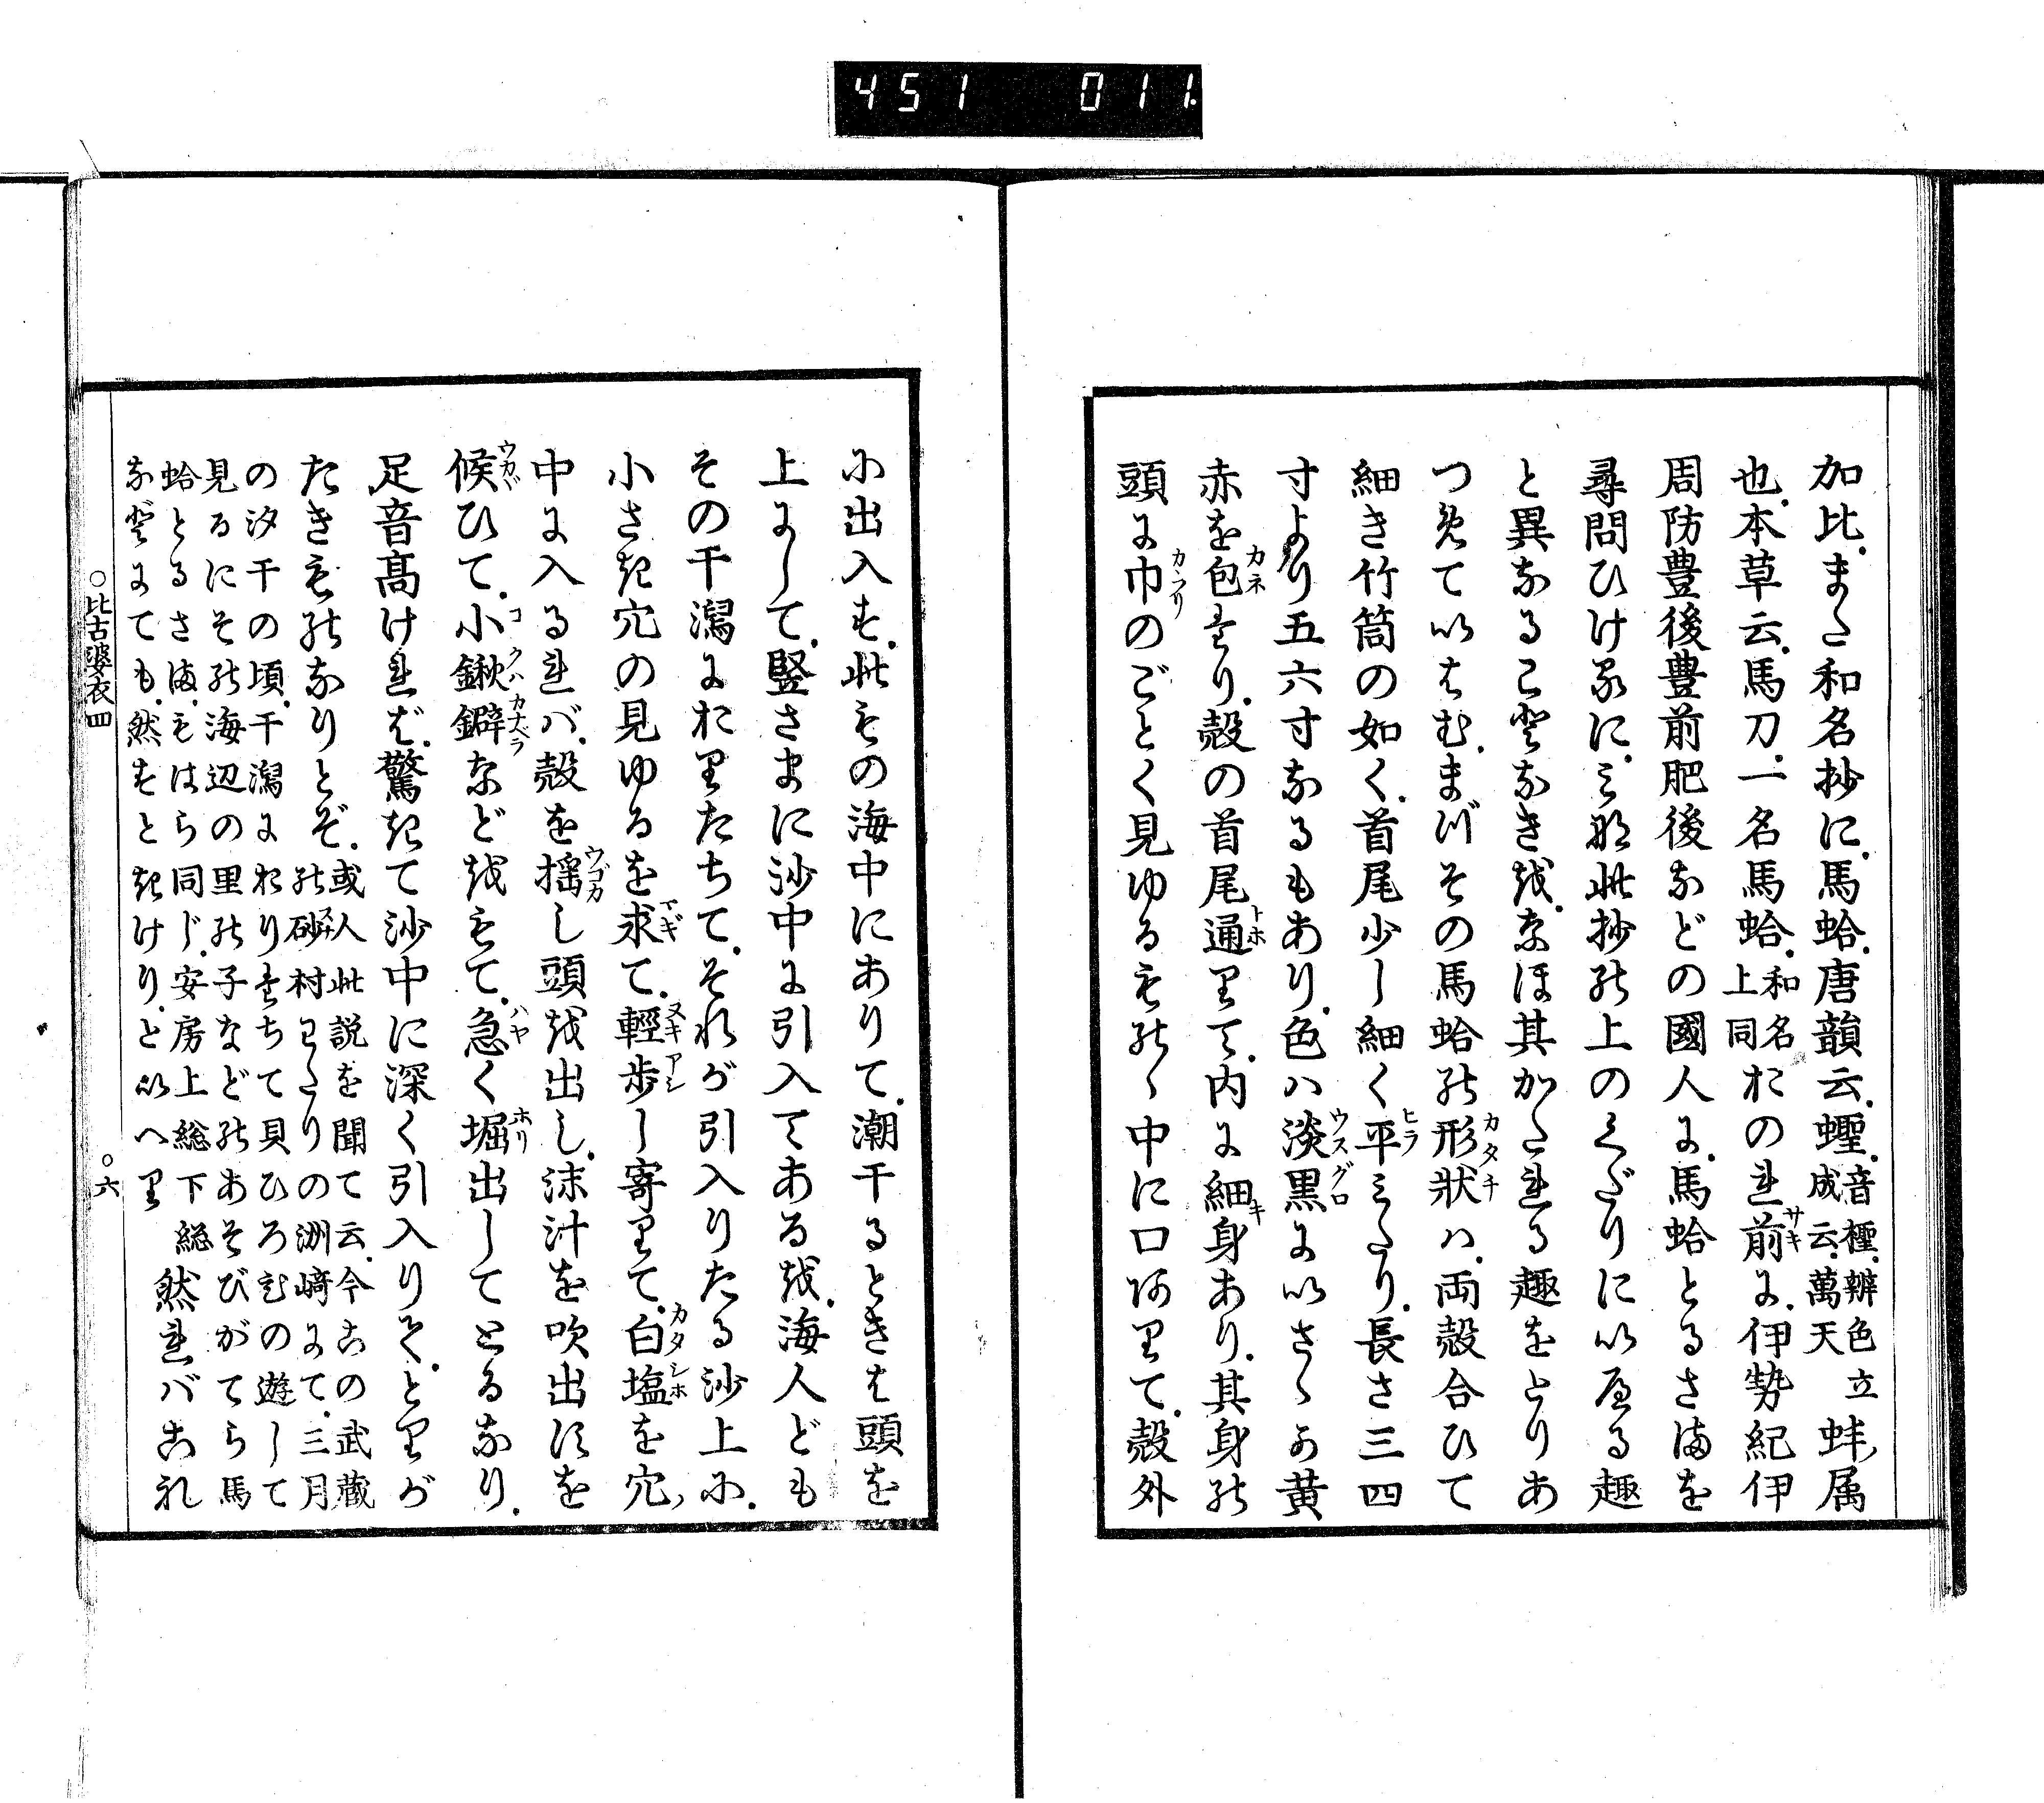 451 011.
加比.また和名抄に.馬蛤.唐韻云.蟶.音檉.辨色立成云.萬天蚌ノ属
也.本草云.馬刀.一名馬蛤.和名上同おのれ前に.伊勢紀伊
周防豊後豊前肥後などの國人に.馬蛤とるさまを
尋問ひけるに.みな此抄の上のくだりにいへる趣
と異なることなきを.なほ其かたれる趣をとりあ
つめていはむ.まづその馬蛤の形狀ハ.両殼合ひて
細き竹筒の如く.首尾少し細く平みたり.長さ三四
寸より五六寸なるもあり.色ハ淡黒にいさゝか黄
赤を包たり.殼の首尾通りて.内に細身あり.其身の
頭に巾のごとく見ゆるものゝ中に口ありて.殼外
に出入す.此もの海中にありて.潮干るときは頭を
上にして.竪さまに沙中に引入てあるを.海人ども
その干潟におりたちて.それが引入りたる沙上に.
小さき穴の見ゆるを求て.輕歩し寄りて.白塩を穴ノ
中に入るれバ.殼を揺し頭を出し.沫汁を吹出すを
候ひて.小鍬鐴などをもて.急く堀出してとるなり.
足音高ければ.驚きて沙中に深く引入りて.とりが
たきものなりとぞ.或人此説を聞て云.今この武藏の砂村わたりの洲﨑にて.三月
の汐干の頃.干潟におりたちて貝ひろひの遊して
見るにその海辺の里の子などのあそびがてら馬
蛤とるさま.もはら同じ.安房上総下総
などにても.然すときけり.といへり
然れバこれ
○比古婆衣四 ○六